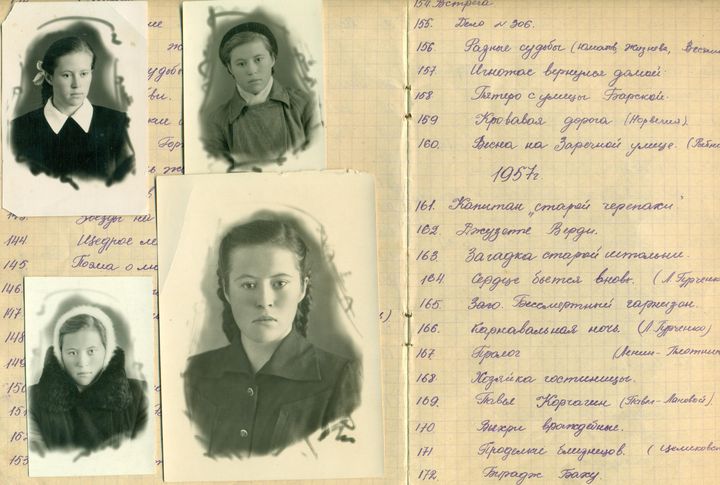 судьбы
144. Щедрое ле
145. Поэма о лю
146.
147
148
149
150
151
153
154. Встреча
155. Дело № 306.
156 Разные судьбы (Юматов, Жизнева,
157. Игнотас вернулся домой.
158 Пятеро с улицы Барской.
159 Кровавая дорога (Норвегия)
160. Весна на Заречной улице.
1957г.
161. Капитан „старой черепахи"
162. Джузеппе Верди.
163. Загадка старой штольни.
164. Сердце бьется вновь. (Л. Гурченко
165. Заю. Бессмертный гарнизон.
166. Карнавальная ночь. (Л. Гурченко)
167 Пролог (Ленин-Плотник
168. Хозяйка гостиницы.
169. Павел Корчагин (Павел-Лановой)
170 Вихри враждебные.
171 Проделки близнецов. (Целиковс
172. Тираж Баку.